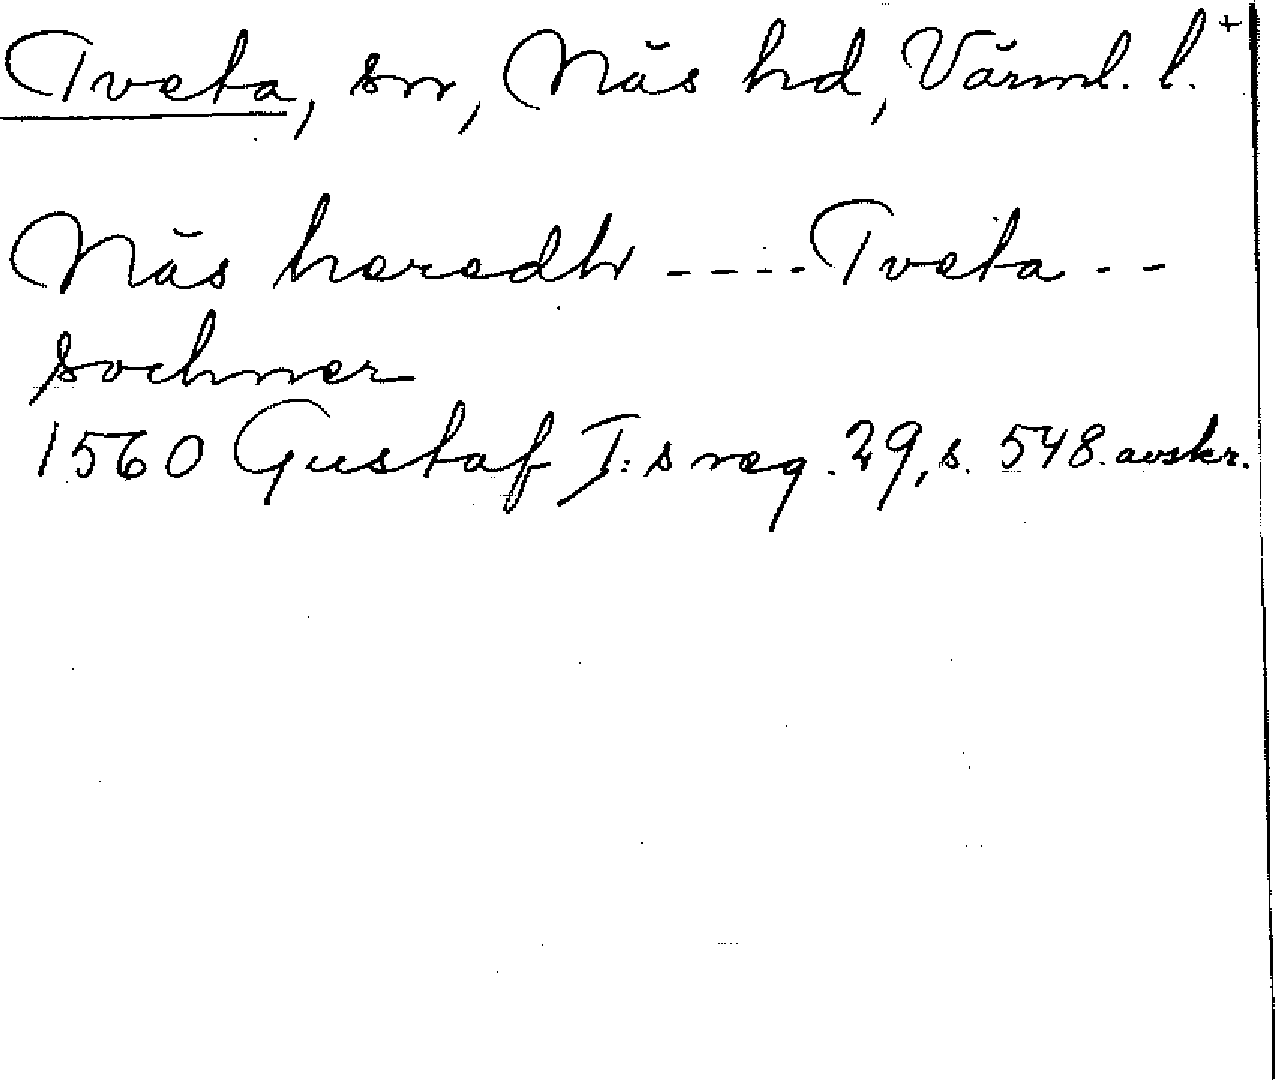 Tveta, sn, Näs hd, Värml. l. +
Näs heredh ---- Tveta --
sochner
1560 Gustaf I:s reg. 29, s. 548. avskr.